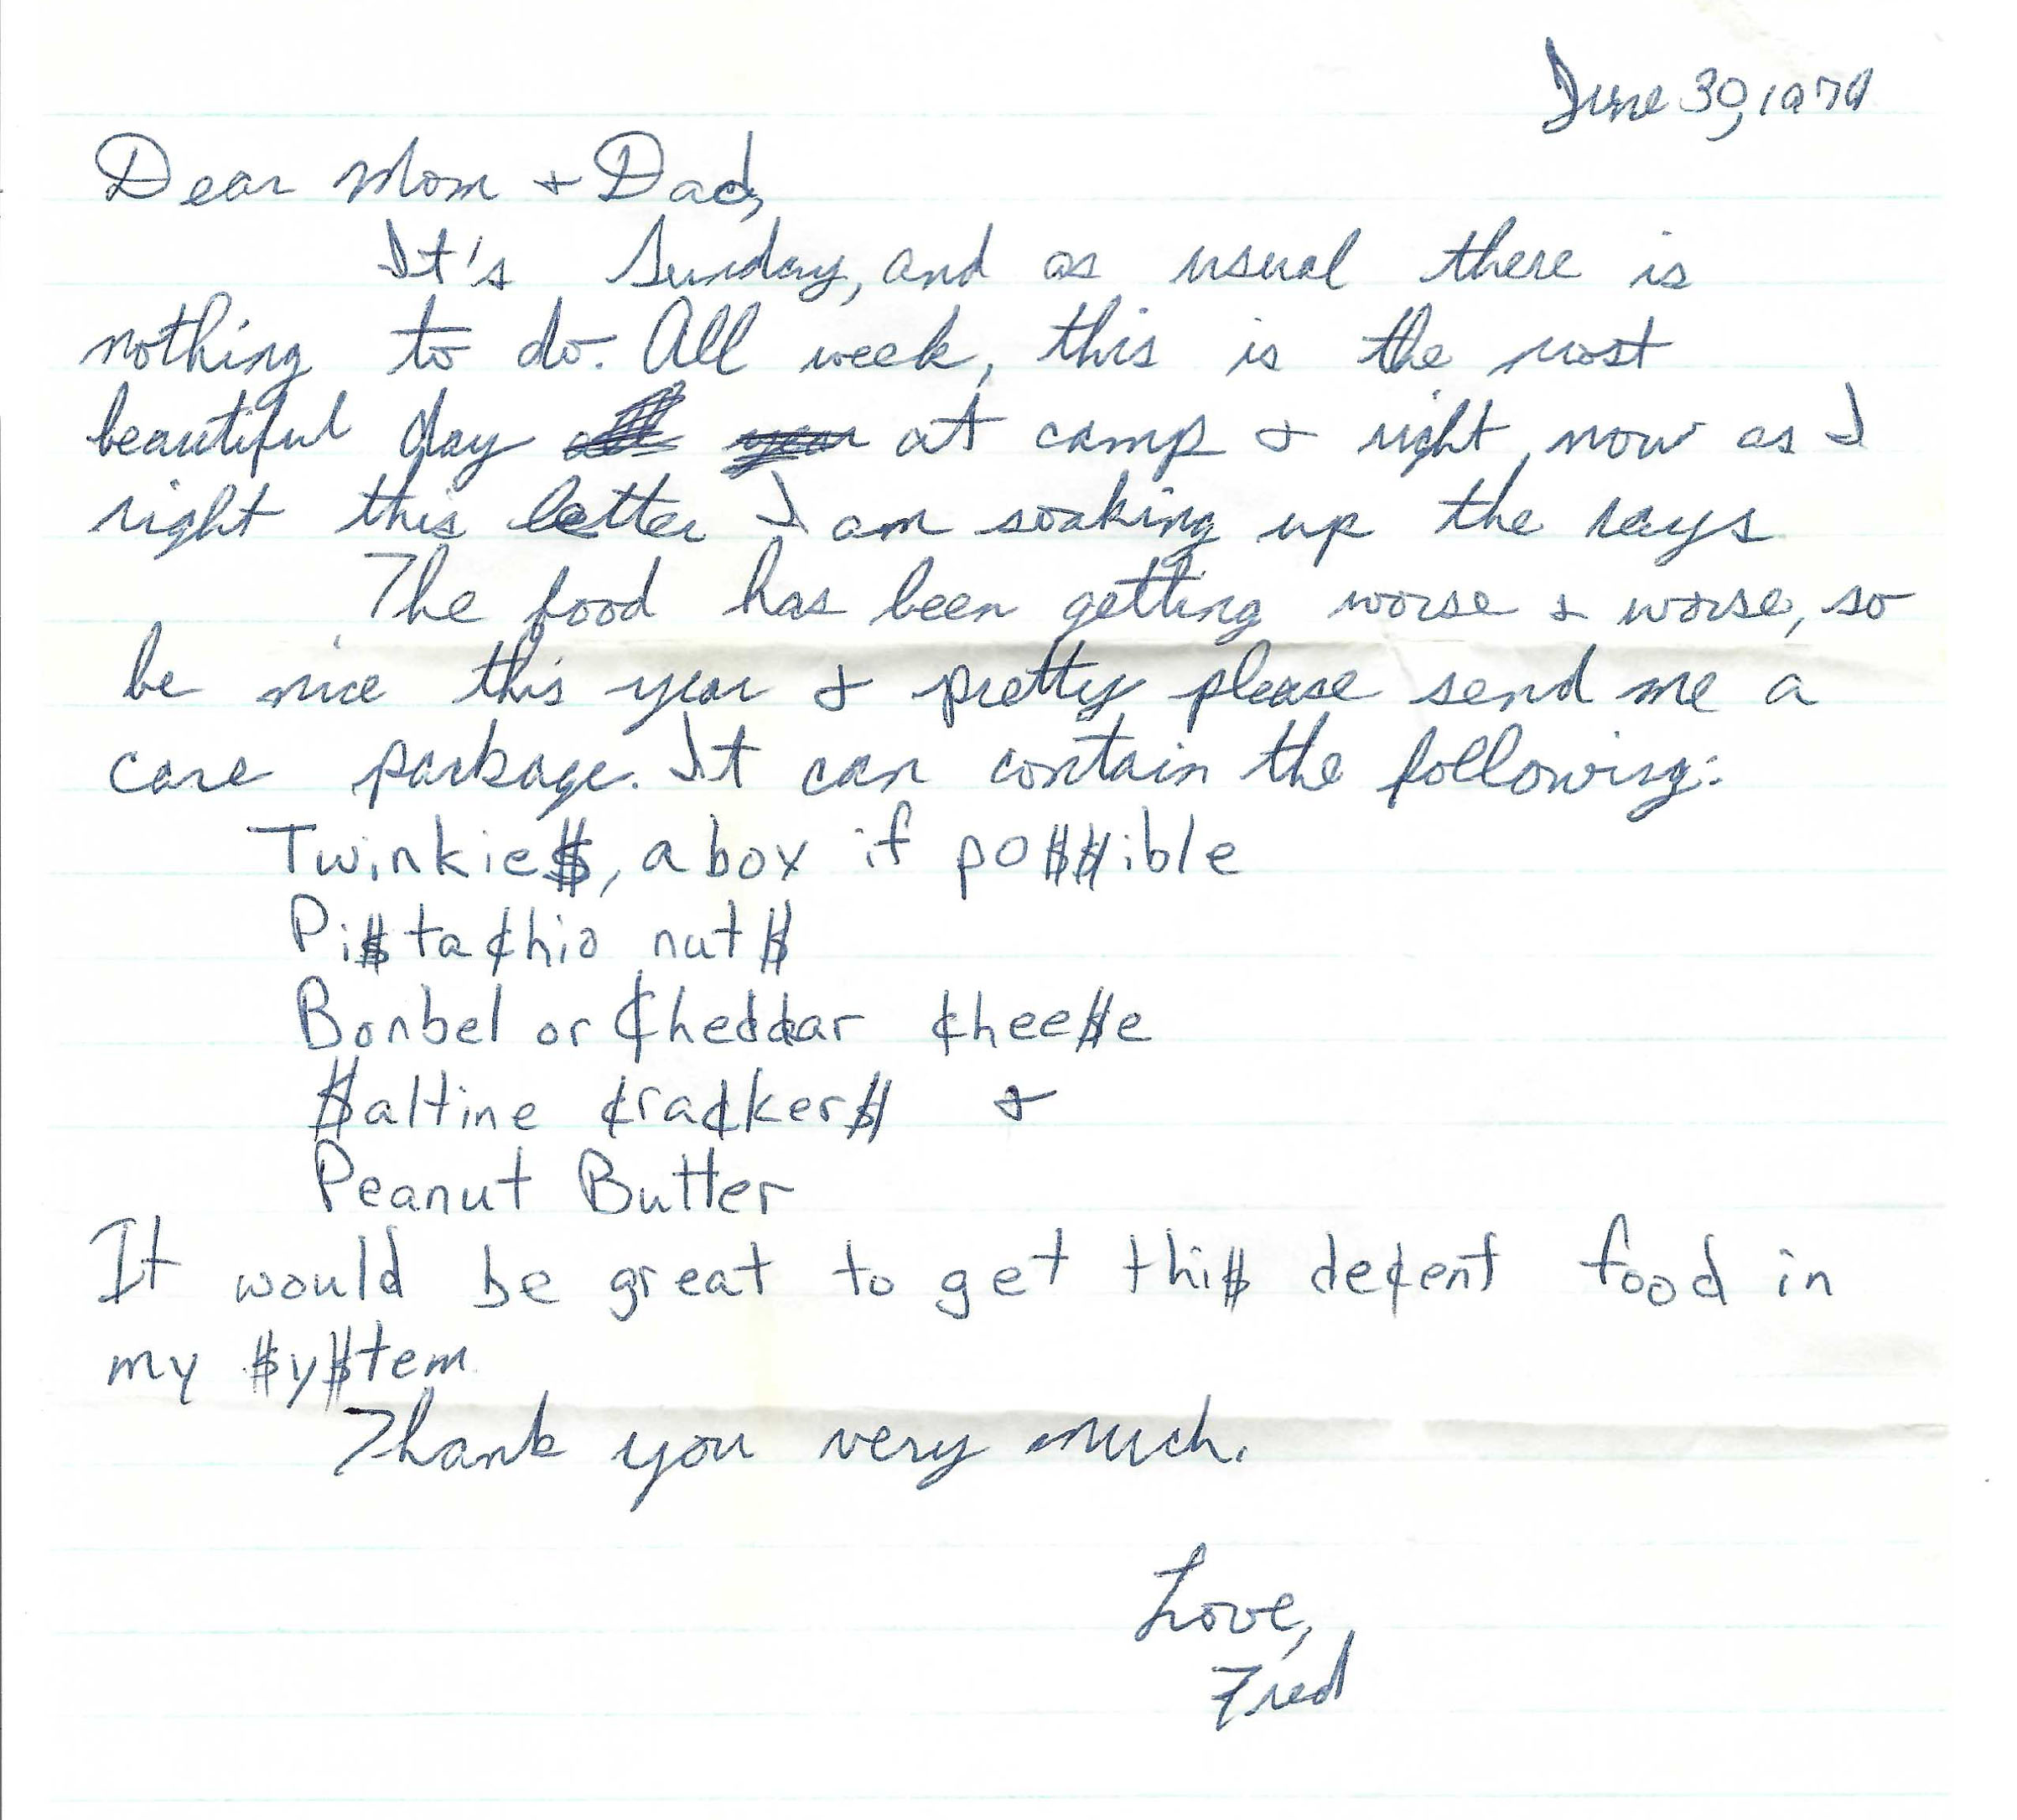 June 30, 1974
Dear Mom & Dad,
It's Sunday, and as usual there is
nothing to do. All week, this is the most
beautiful day at camp & right now as I
right this letter I am soaking up the rays
The food has been getting worse & worse, so
be nice this year & pretty please send me a
care package. It can contain the following:
Twinkie$, a box if po$$ible
Pi$ta¢hio nut$
Bonbel or ¢heddar ¢hee$e
$altine ¢ra¢ker$ &
Peanut Butter
It would be great to get thi$ de¢ent food in
my $y$tem
Thank you very much.
Love,
Fred